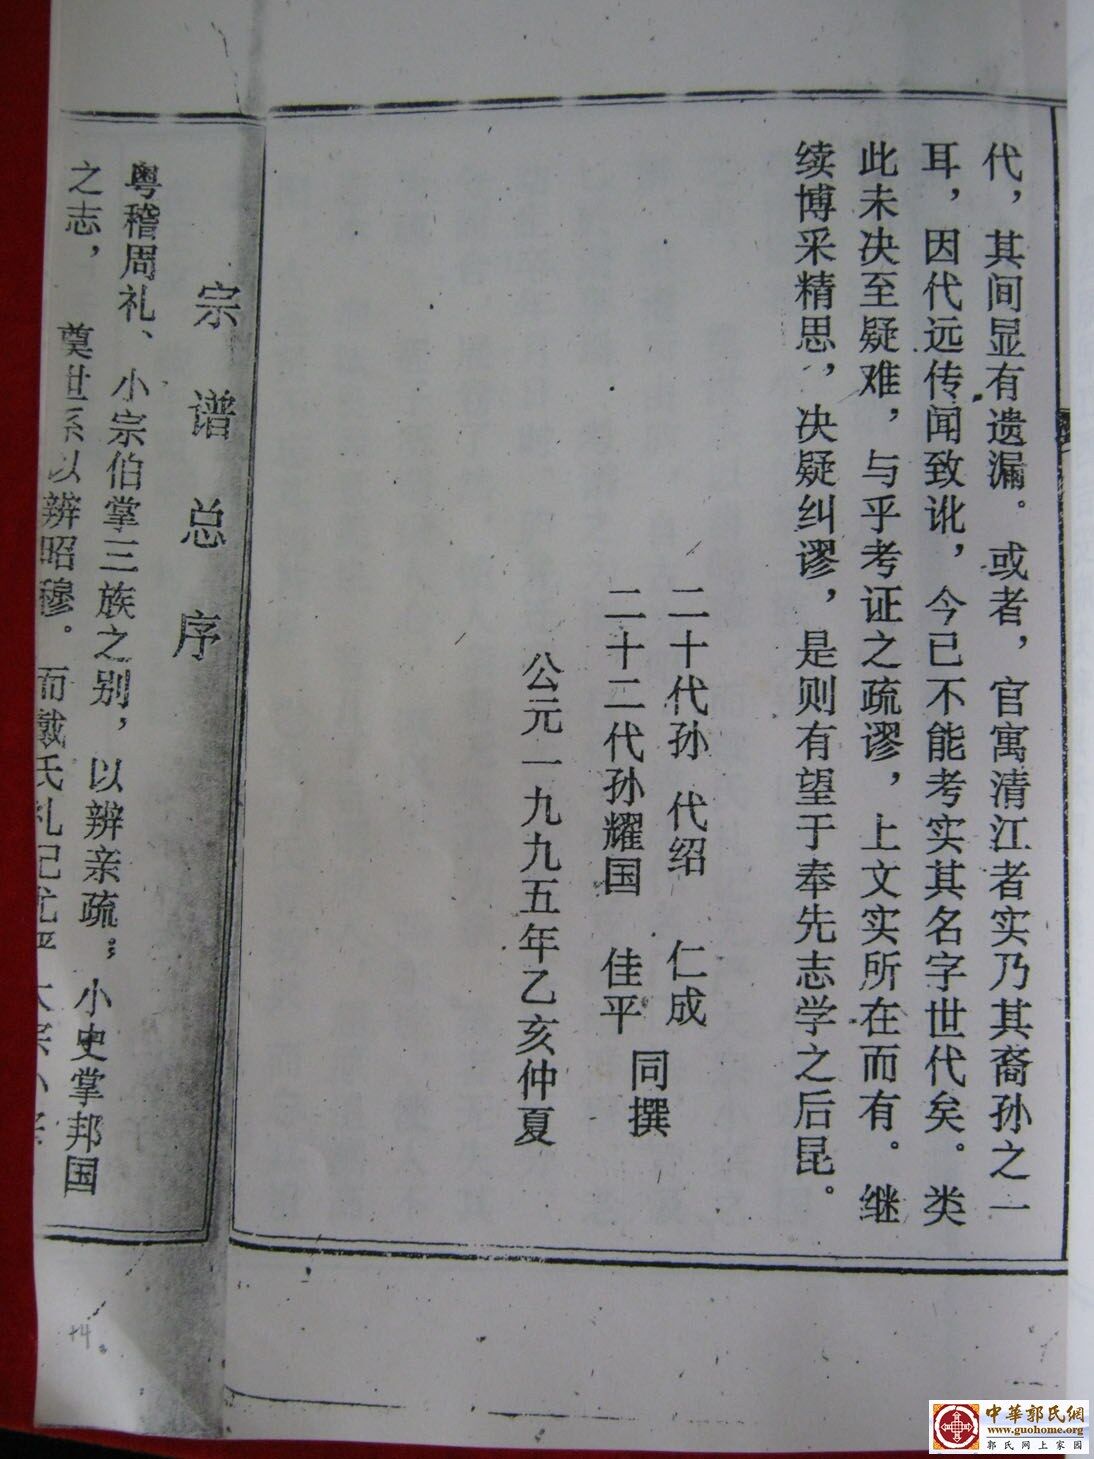 代，其间显有遗漏。或者，官寓清江者实乃其裔孙之一
耳，因代远传闻致讹，今已不能考实其名字世代矣。类
此未决至疑难，与乎考证之疏谬，上文实所在而有。继
续博采精思，决疑纠谬，是则有望于奉先志学之后昆。
二十代孙 代绍 仁成
二十二代孙耀国 佳平
同撰
公元一九九五年乙亥仲夏
宗谱总序
粤稽周礼、小宗伯掌三族之别，以辨亲疏；小史掌邦国
之志，奠世系以辨昭穆。而戴氏礼记尤严大宗小宗
14。
中華郭氏網
www.guohome.org
郭氏网上家园